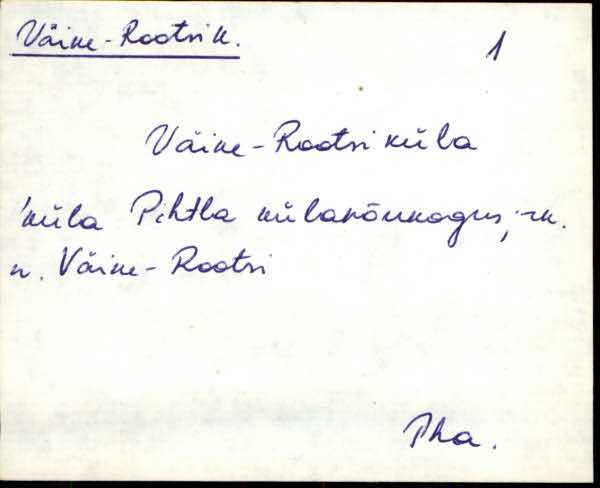 Väike-Rootsi k.
1
Väike-Rootsi küla
'küla Pihtla külanõukogus; rk.
n. Väike-Rootsi
Pha.